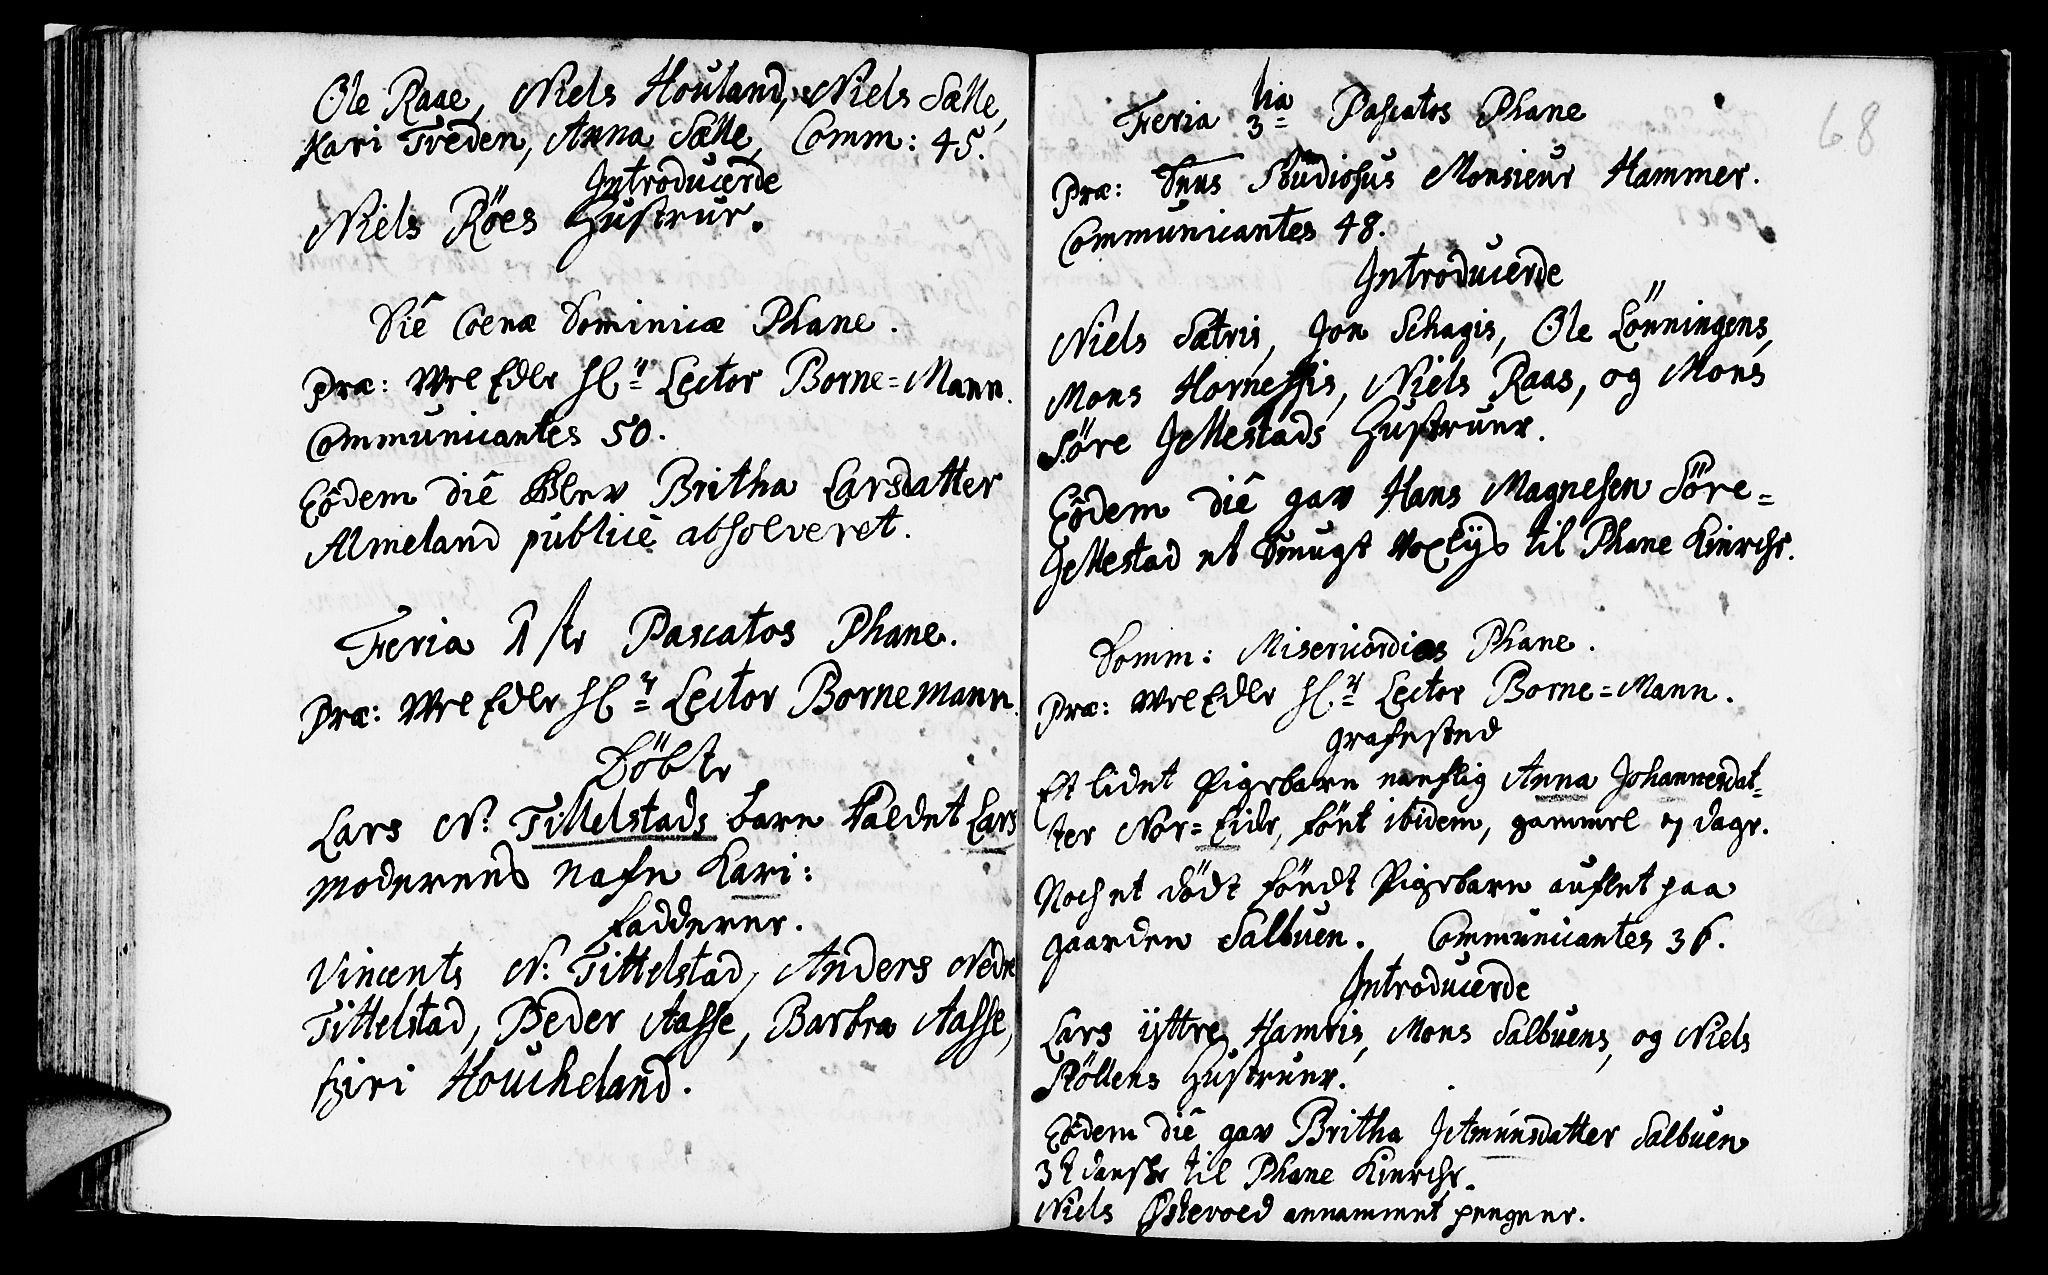 Ole Raae, Niels Houland, Niels Sælle,
Kari Tveden, Anna Sælle, Comm: 45.
Introducerde
Niels Röes Hustrue.
Diê Coenæ Dominicæ Phane.
Præ: Wel Edle Hr Lector Borne=Mann.
Communicantes 50.
Eôdem diê blev Britha Larsdatter
Almeland publicè absolveret.
Feria 1ste Pascatos Phane.
Præ: Wel Edle Hr Lector Bornemann.
Döbte
Lars N: Tittelstads barn kaldet Lars
moderens nafn Kari:
Faddere.
Vincents N: Tittelstad, Anders Nedre
Tittelstad, Peder Aasse, Barbra Aasse,
Siri Houcheland.
68
Feria 3tia Pascatos Phane
Præ: Dnus Studiosus Monsieur Hammer.
Communicantes 48.
Introducerde
Niels Sætris, Jon Schagis, Ole Lönningens,
Mons Hornessis, Niels Raas, og Mons
Söre Jellestads Hustruer.
Eôdem diê gav Hans Magnesen Söre=
Jellestad et Smugt Voxlÿs til Phane Kirche.
Domm: Misericordias Phane.
Præ: Wel Edle Hr Lector Borne=Mann.
Grafested
Et lidet Pigebarn nemlig Anna Johannesdat=
ter Nor=Eide, föt ibidem, gammel 7 dage.
Noch et dödt födt Pigebarn auflet paa
gaarden Salbuen. Communicantes 36.
Introducerde
Lars ÿttre Hamris, Mons Salbuens, og Niels
Stöllens Hustruer.
Eôdem diê gav Britha Jetmunsdatter Salbuen
3 t danske til Phane Kirche.
Niels Østevoed annammet pengene.